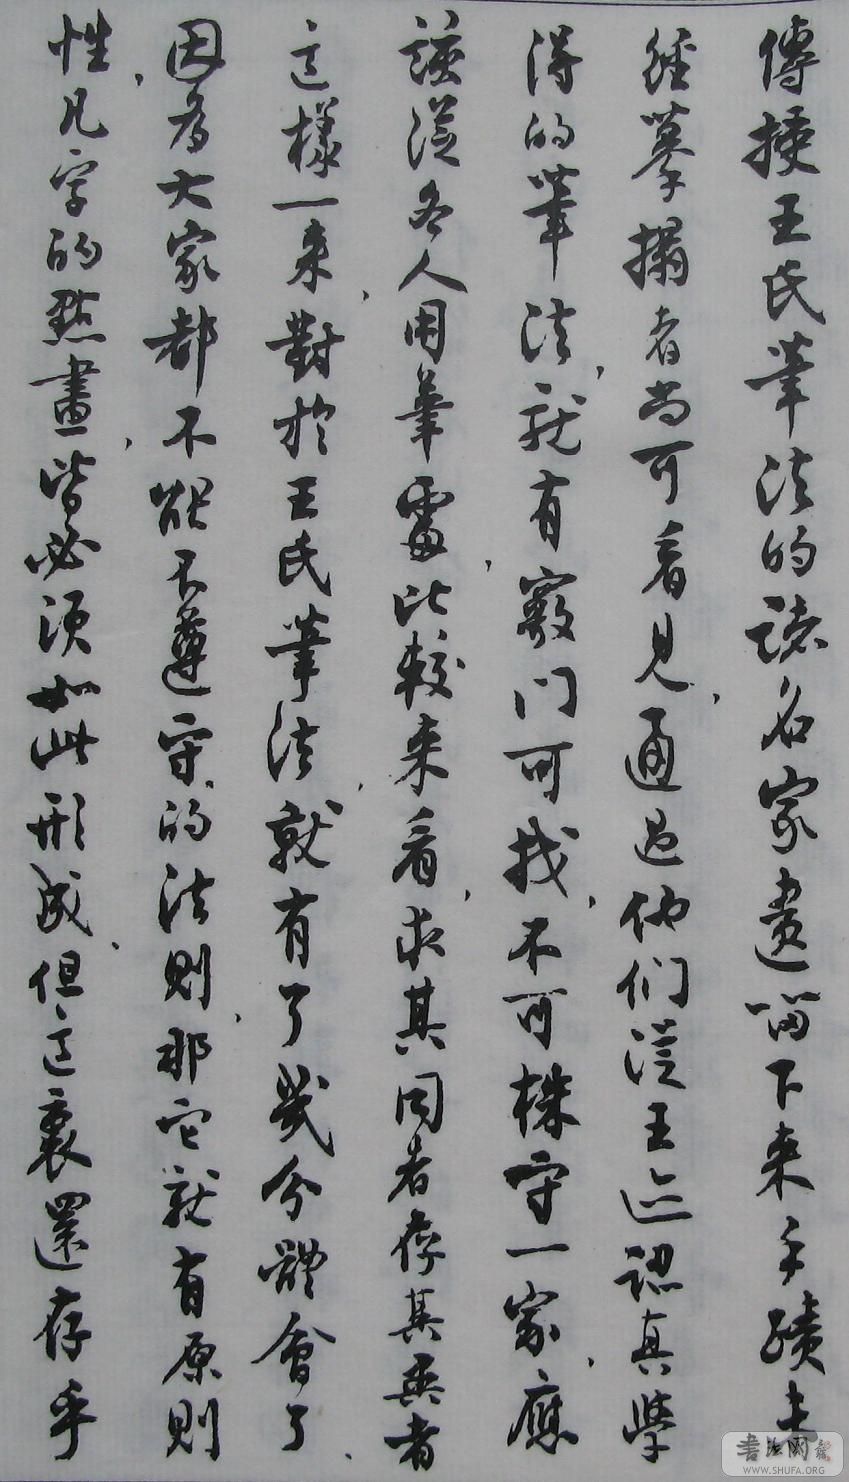 傳授王氏筆法的諸名家遺留下来手蹟未
經摹搨者尚可看見、通过他们從王迹認真學
得的筆法、就有竅门可找、不可株守一家、應
該從各人用筆處、比較来看、求其同者存其異者
這樣一来、對於王氏筆法、就有了幾分體會了、
因为大家都不能不遵守的法则、那它就有原则
性、凡字的點畫、皆必須如此形成、但這裏還存乎
書法网
WWW.SHUFA.ORG